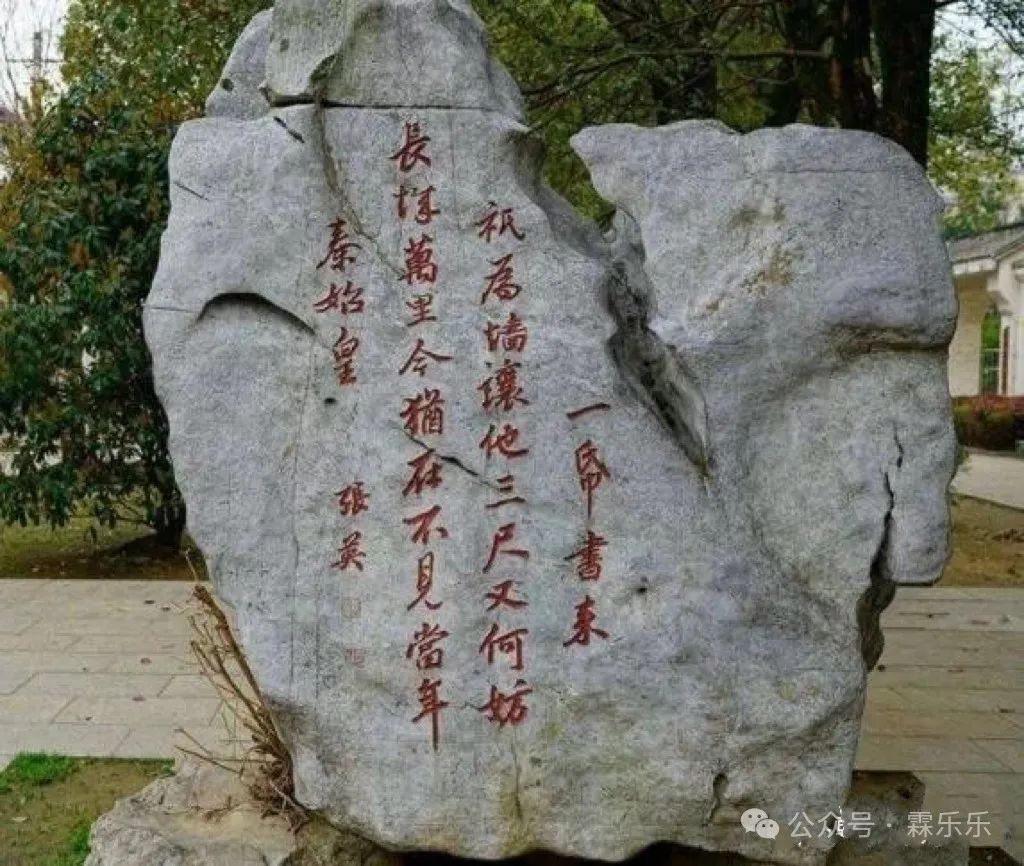 一帋書来
祇為墙讓他三尺又何妨
長城萬里今猶在不見當年
秦始皇
張英
公众号·霖乐乐